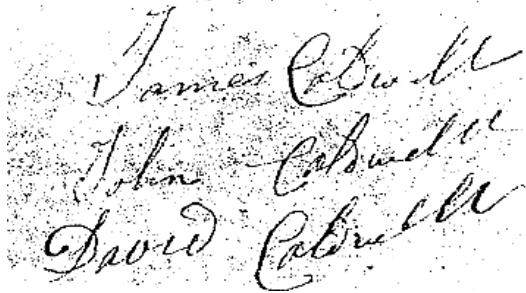 James Caldwell
John Caldwell
David Caldwell